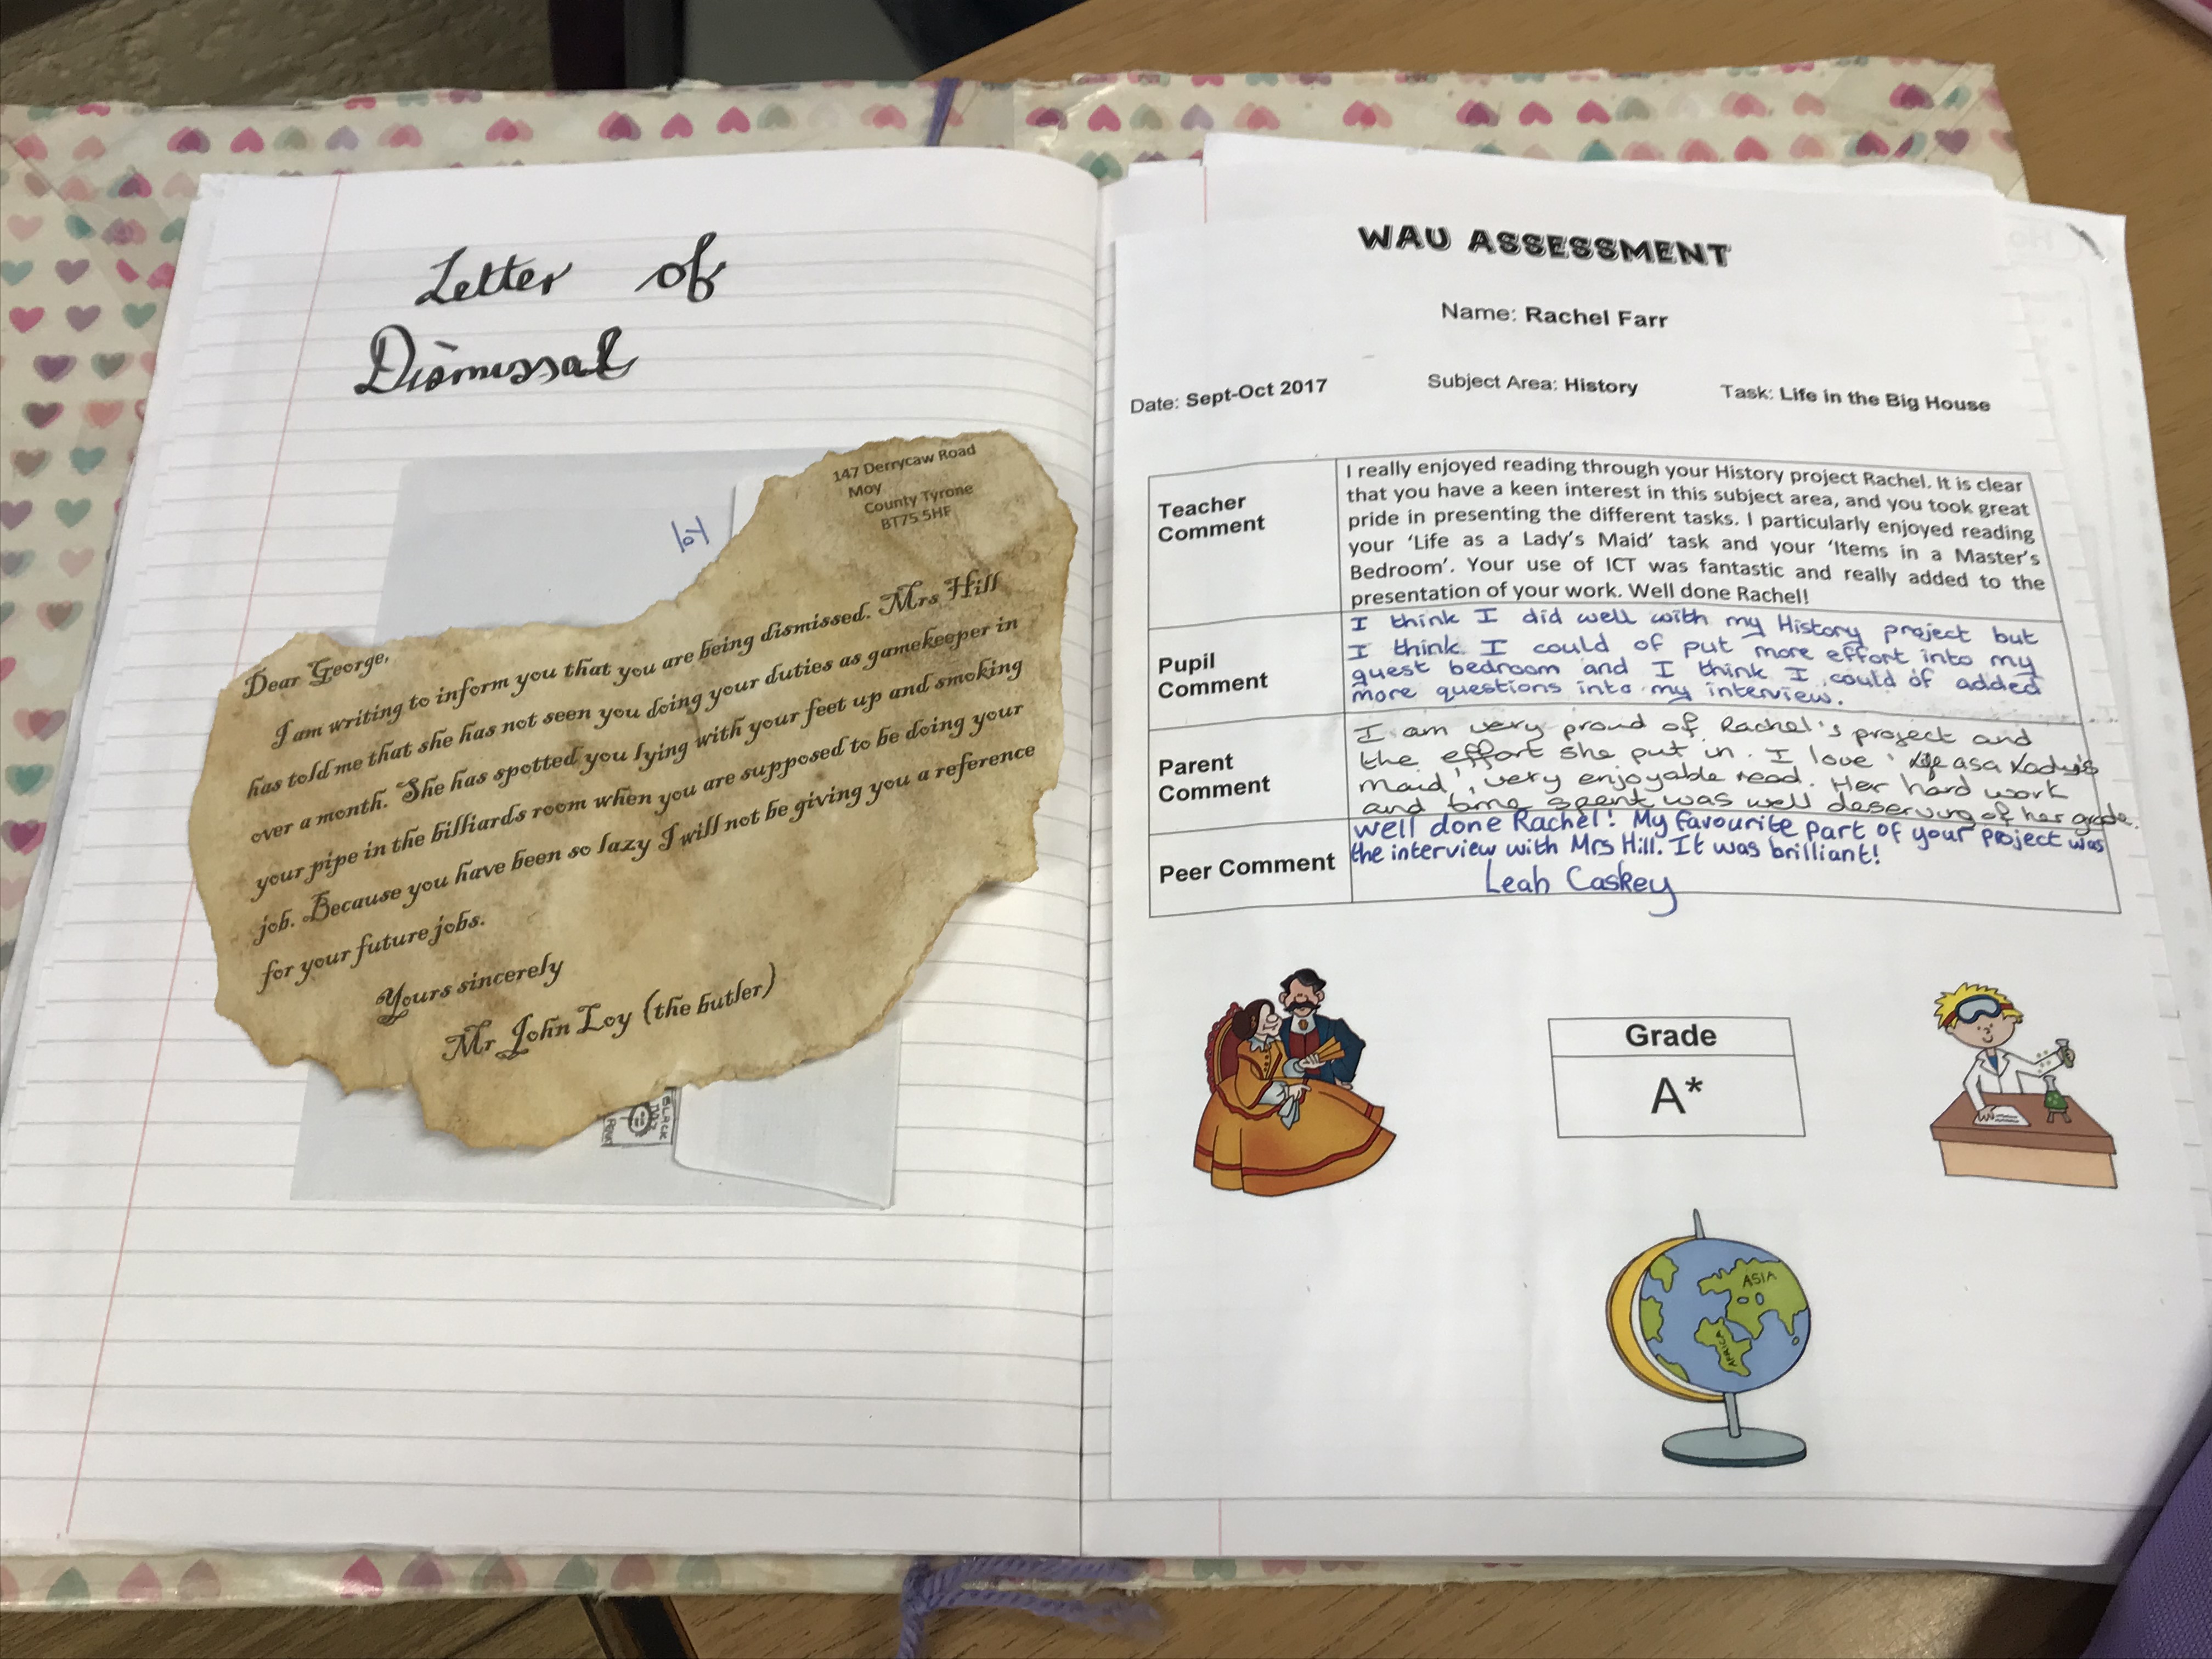 Letter of
Dismissal
loy
147 Derrycaw Road
Moy
County Tyrone
BT75 5HF
Dear George,
I am writing to inform you that you are being dismissed. Mrs Hill
has told me that she has not seen you doing your duties as gamekeeper in
over a month. She has spotted you lying with your feet up and smoking
your pipe in the billiards room when you are supposed to be doing your
job. Because you have been so lazy I will not be giving you a reference
for your future jobs.
Yours sincerely
Mr John Loy (the butler)
BLACK
WAU ASSESSMENT
Name: Rachel Farr
Date: Sept-Oct 2017 Subject Area: History Task: Life in the Big House
Teacher
Comment
I really enjoyed reading through your History project Rachel. It is clear
that you have a keen interest in this subject area, and you took great
pride in presenting the different tasks. I particularly enjoyed reading
your ‘Life as a Lady’s Maid’ task and your ‘Items in a Master’s
Bedroom’. Your use of ICT was fantastic and really added to the
presentation of your work. Well done Rachel!
Pupil
Comment
I think I did well with my History project but
I think I could of put more effort into my
guest bedroom and I think I could of added
more questions into my interview.
Parent
Comment
I am very proud of Rachel's project and
the effort she put in. I love 'Life as a Lady's
Maid', very enjoyable read. Her hard work
and time spent was well deserving of her grade.
Peer Comment
well done Rachel! My favourite part of your project was
the interview with Mrs Hill. It was brilliant!
Leah Caskey
Grade
A*
ASIA
AFRICA